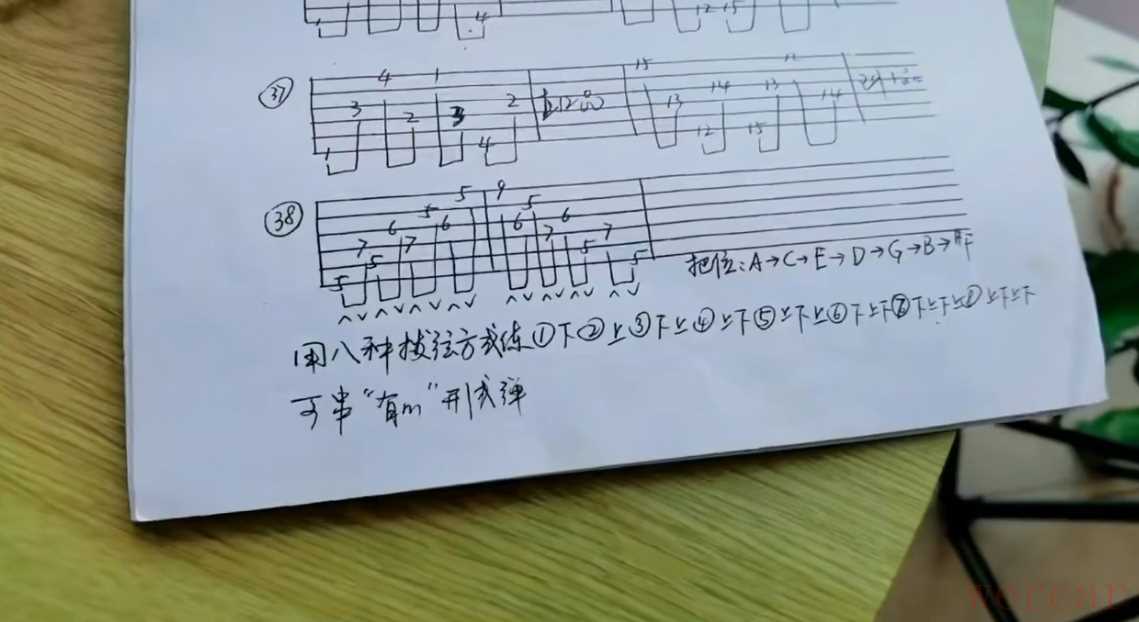 4 12 15
㊲ 1 3 4 2 1 3 4 2 15 13 12 14 15 13 11 14
㊳ 5 7 5 6 7 5 6 5 9 6 5 7 6 5 7 5
把位:A→C→E→D→G→B→#F
用八种拨弦方式练①下②上③下上④上下⑤上下上⑥下上下⑦下上下上⑧上下上下
可串“有m”形式弹